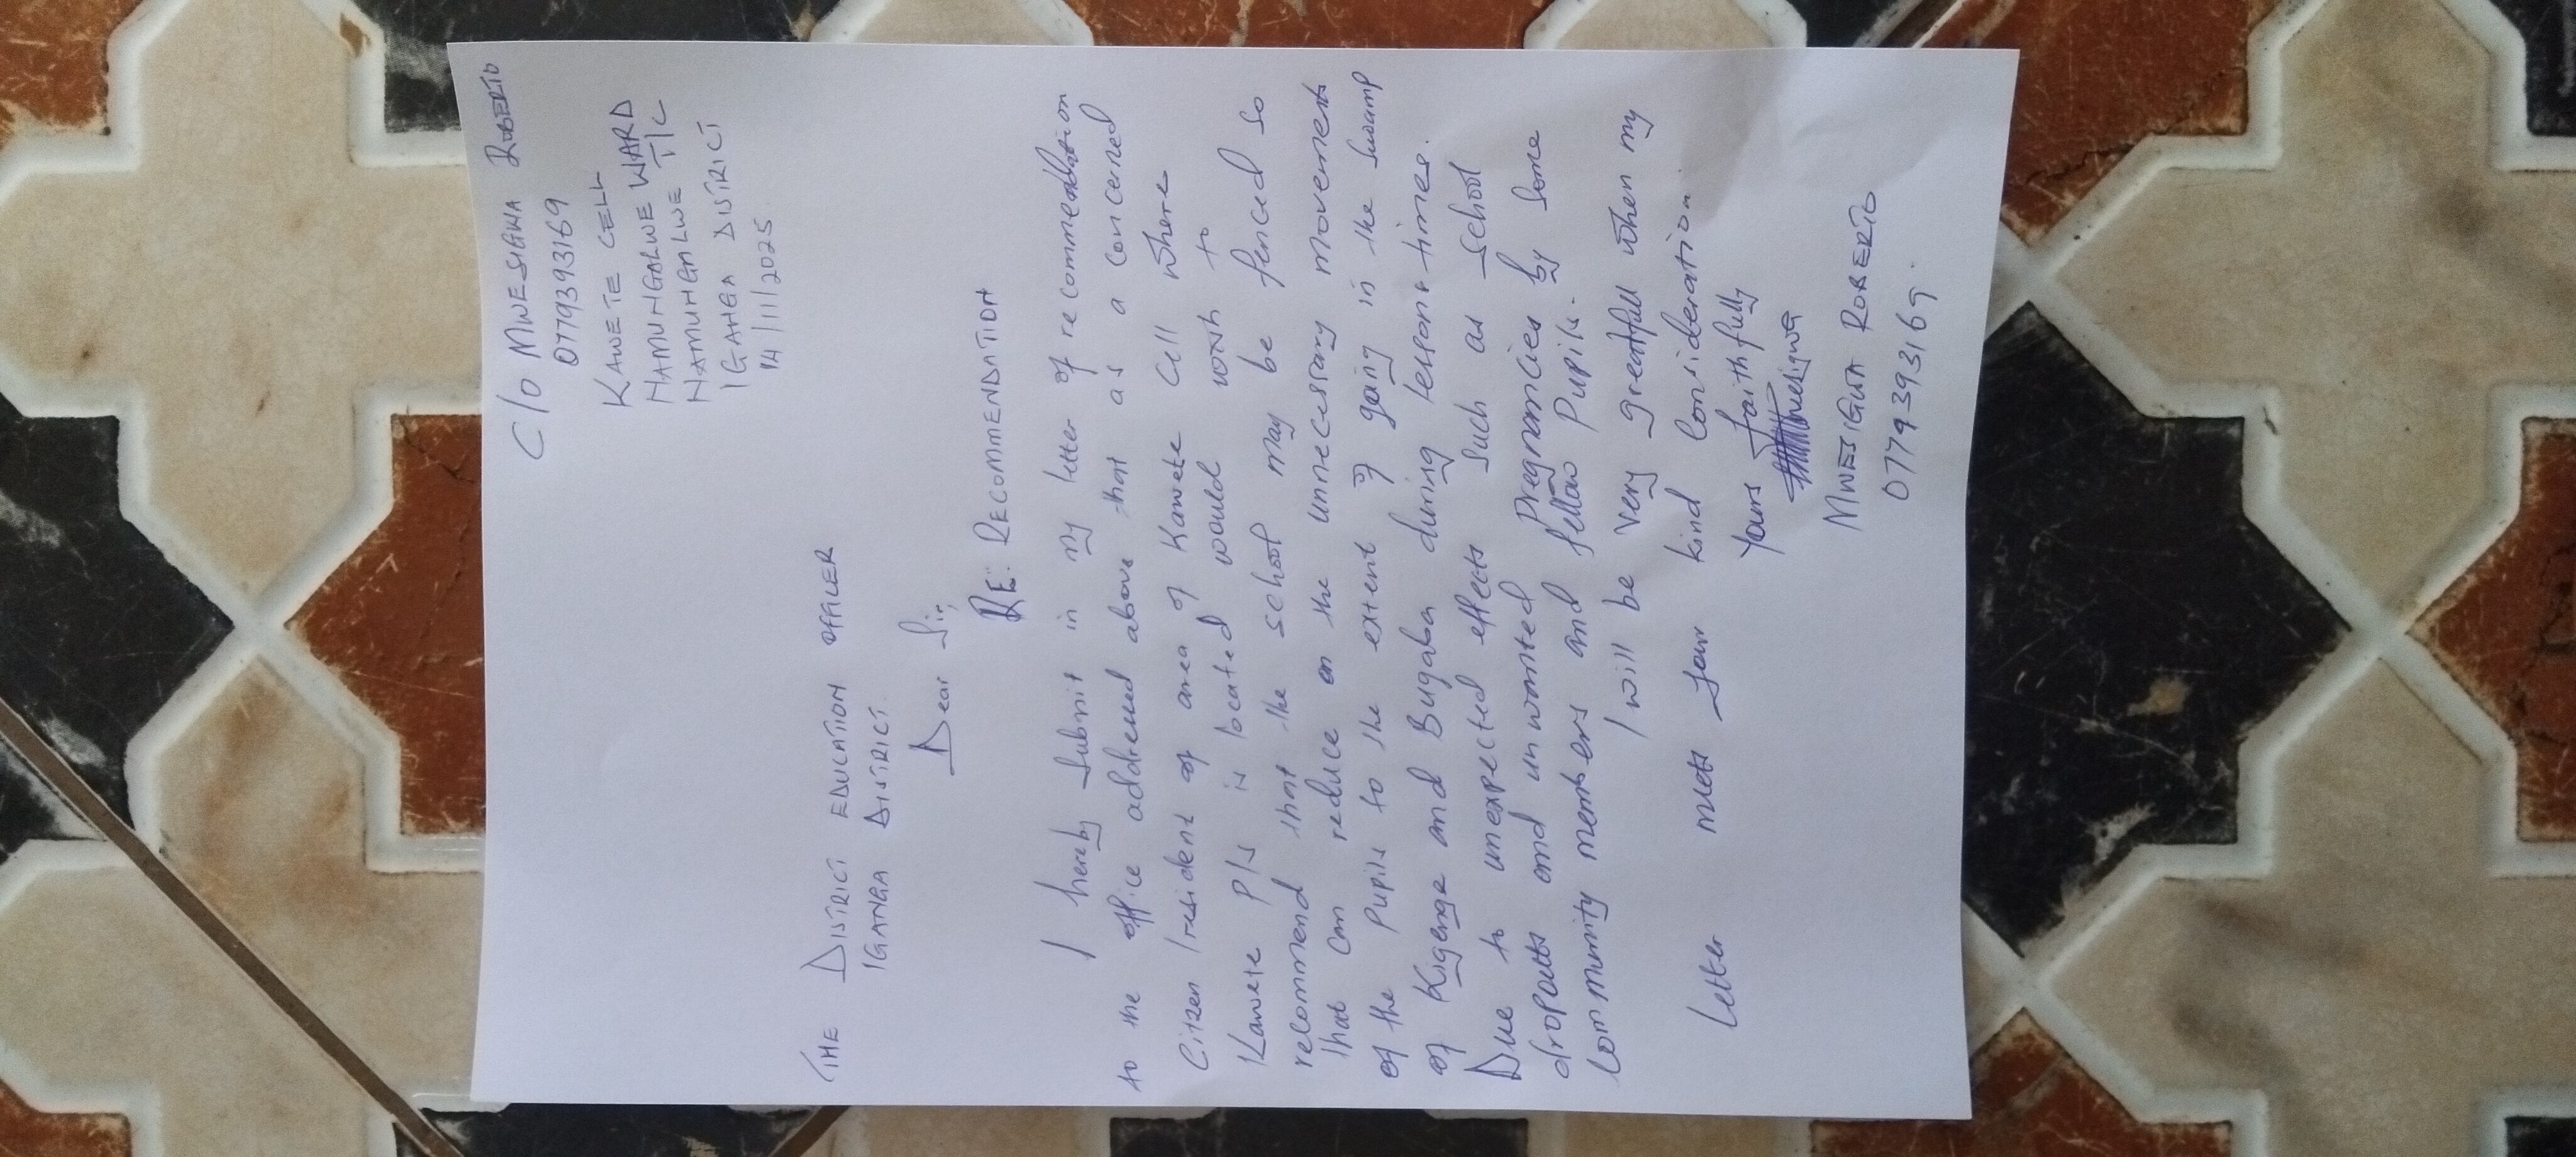 C/O MWESIGWA ROBERTO
0779393169
KAWETE CELL
NAMUNGALWE WARD
NAMUNGALWE T/C
IGANGA DISTRICT
14/11/2025.
THE DISTRICT EDUCATION OFFICER
IGANGA DISTRICT.
Dear Sir,
RE: RECOMMENDATION
I hereby submit in my letter of recommendation
to the office addressed above that as a concerned
Citizen/resident of area of Kawete Cell where
Kawete P/s is located would wish to
recommend that the school may be fenced so
that can reduce on the unnecessary movements
of the pupils to the extent of going in the swamp
of Kigenge and Bugaba during lessons times.
Due to unexpected effects such as school
dropouts and unwanted Pregnancies by some
Community members and fellow Pupils.
I will be very greatfull when my
letter meets your kind Consideration.
Yours faithfully
Mwesigwa
MWESIGWA ROBERTO
0779393169.